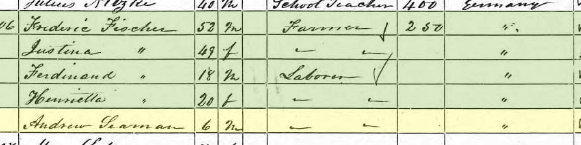 Julius 40 m School Teacher 400 Germany
06 Frederic Fischer 52 m Farmer 250 "
Justina " 49 f — — "
Ferdinand " 18 m Laborer "
Henrietta " 20 f — — "
Andrew Seaman 6 m — — "